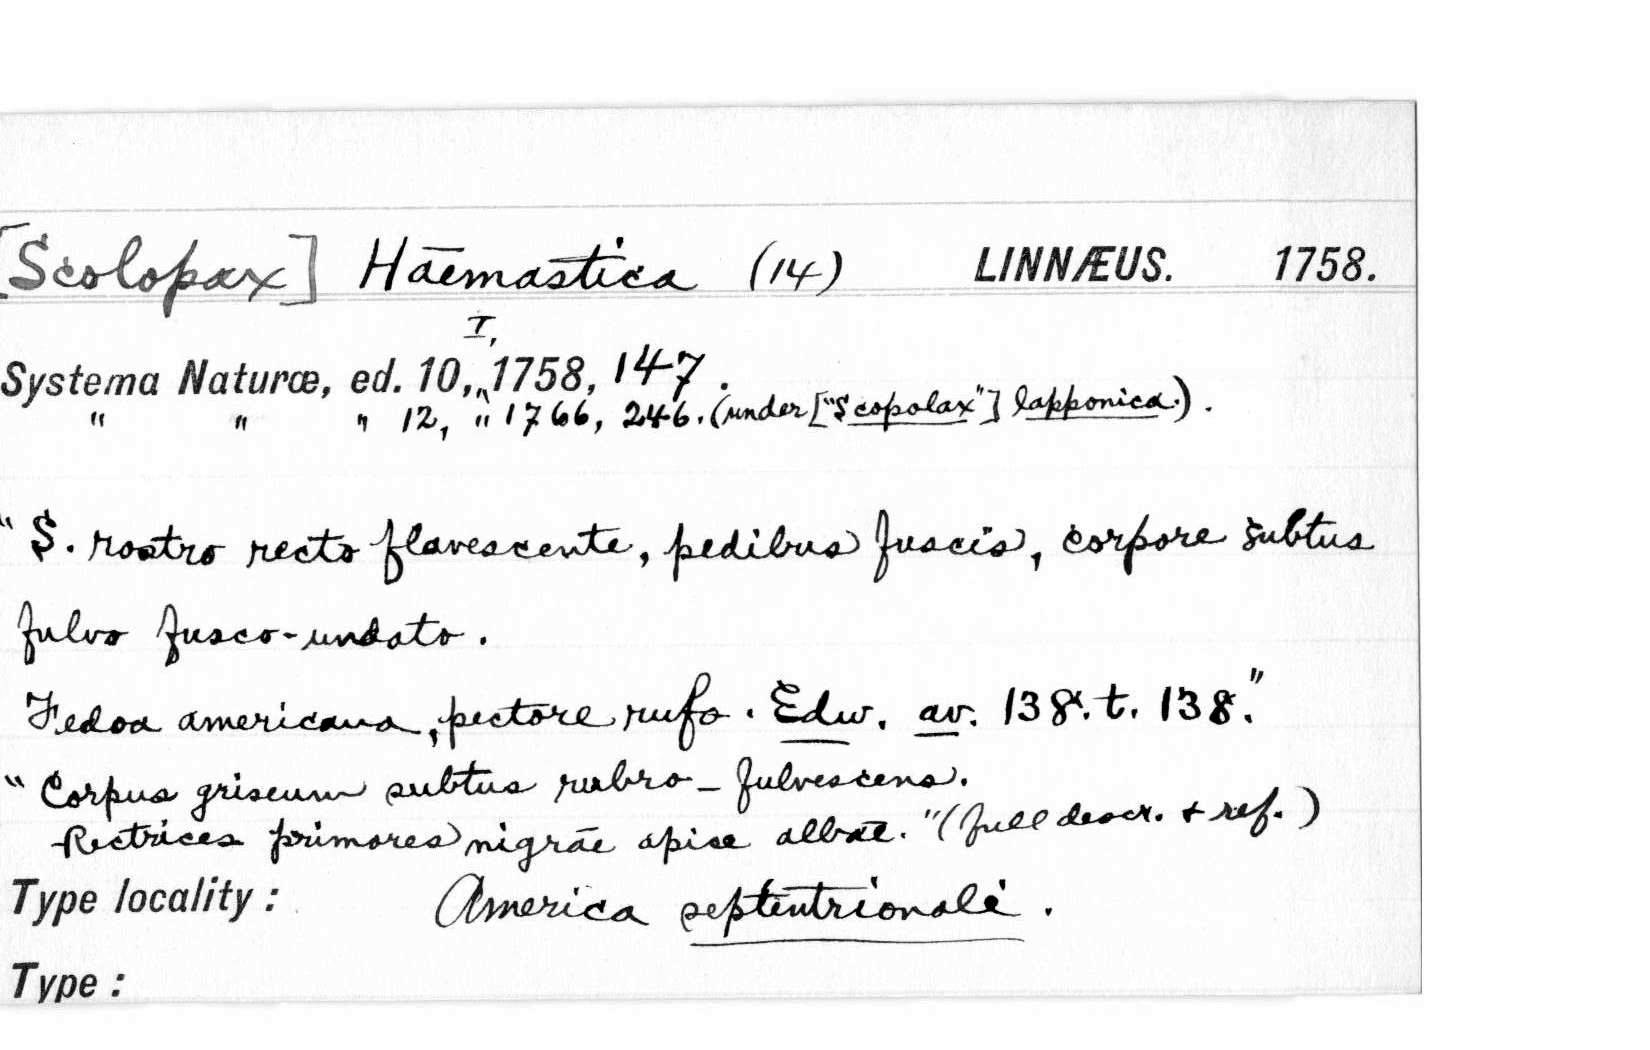 [Scolopax] Haemastica (14) LINNÆUS. 1758.
I,
Systema Naturæ, ed. 10,‸1758, 147.
" " " 12, " 1766, 246. (under ["Scopolax"] lapponica.).
"S. rostro recto flavescente, pedibus fuscis, corpore subtus
fulvo fusco-undato.
Fedoa americana, pectore rufo. Edw. av. 138. t. 138."
"Corpus griseum subtus rubro-fulvescens.
Rectrices primores nigrae apice albae." (full descr. + ref.)
Type locality: America septentrionali.
Type: